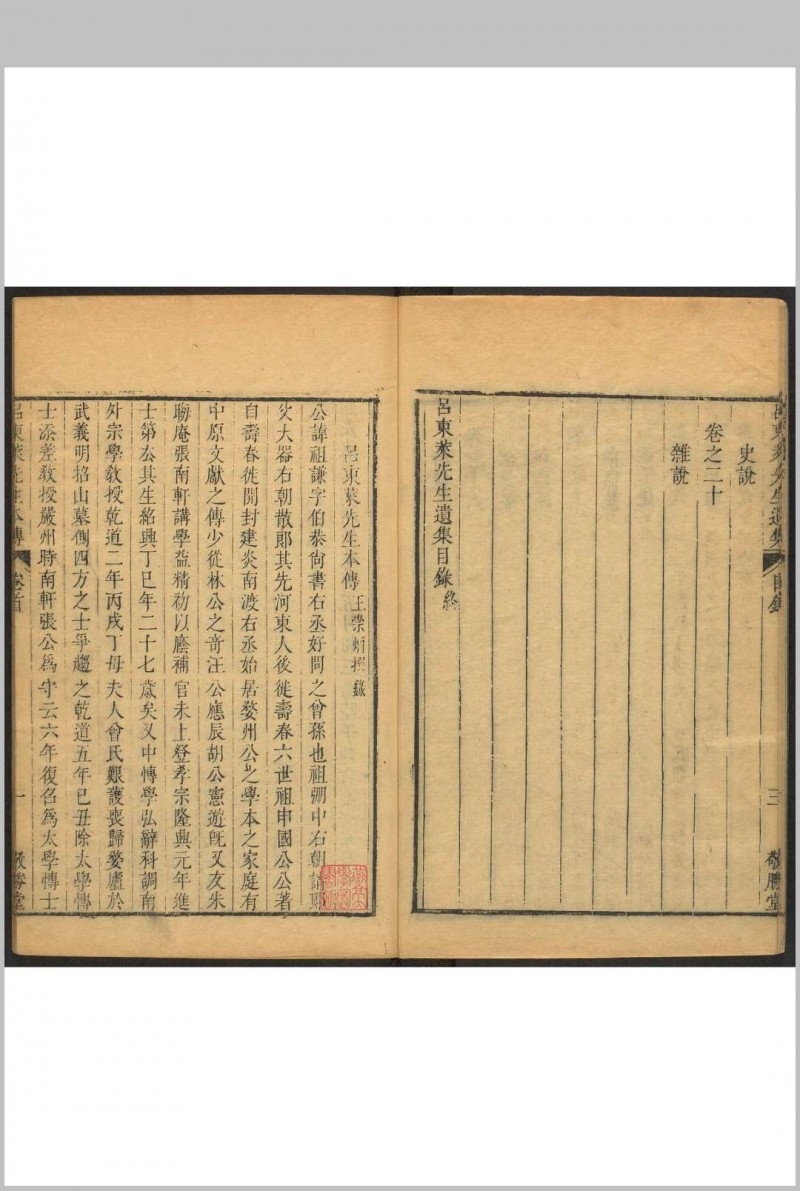 呂東萊先生遺集 目錄 三 敬勝堂
史說
卷之二十
雜說
呂東萊先生遺集目錄終
呂東萊先生本傳 王崇炳撰錄
公諱祖謙字伯恭尚書右丞好問之曾孫也祖弸中右朝請郎
父大器右朝散郎其先河東人後徙壽春六世祖申國公公著
自壽春徙開封建炎南渡右丞始居婺州公之學本之家庭有
中原文獻之傳少從林公之奇汪公應辰胡公憲遊旣又友朱
晦庵張南軒講學益精初以廕補官未上登孝宗隆興元年進
士第去其生紹興丁巳年二十七歲矣又中博學弘辭科調南
外宗學教授乾道二年丙戌丁母夫人曾氏艱護喪歸婺廬於
武義明招山墓側四方之士爭趨之乾道五年己丑除太學博
士添差教授嚴州時南軒張公爲守云六年復名爲太學博士
呂東萊先生本傳 卷首 一 敬勝堂